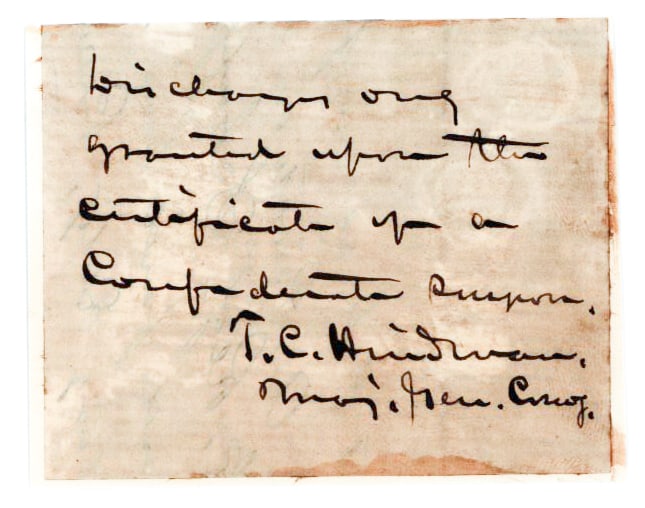 Discharges only
granted upon the
certificate of a
Confederate surgeon.
T. C. Hindman.
Maj. Gen. Comg.